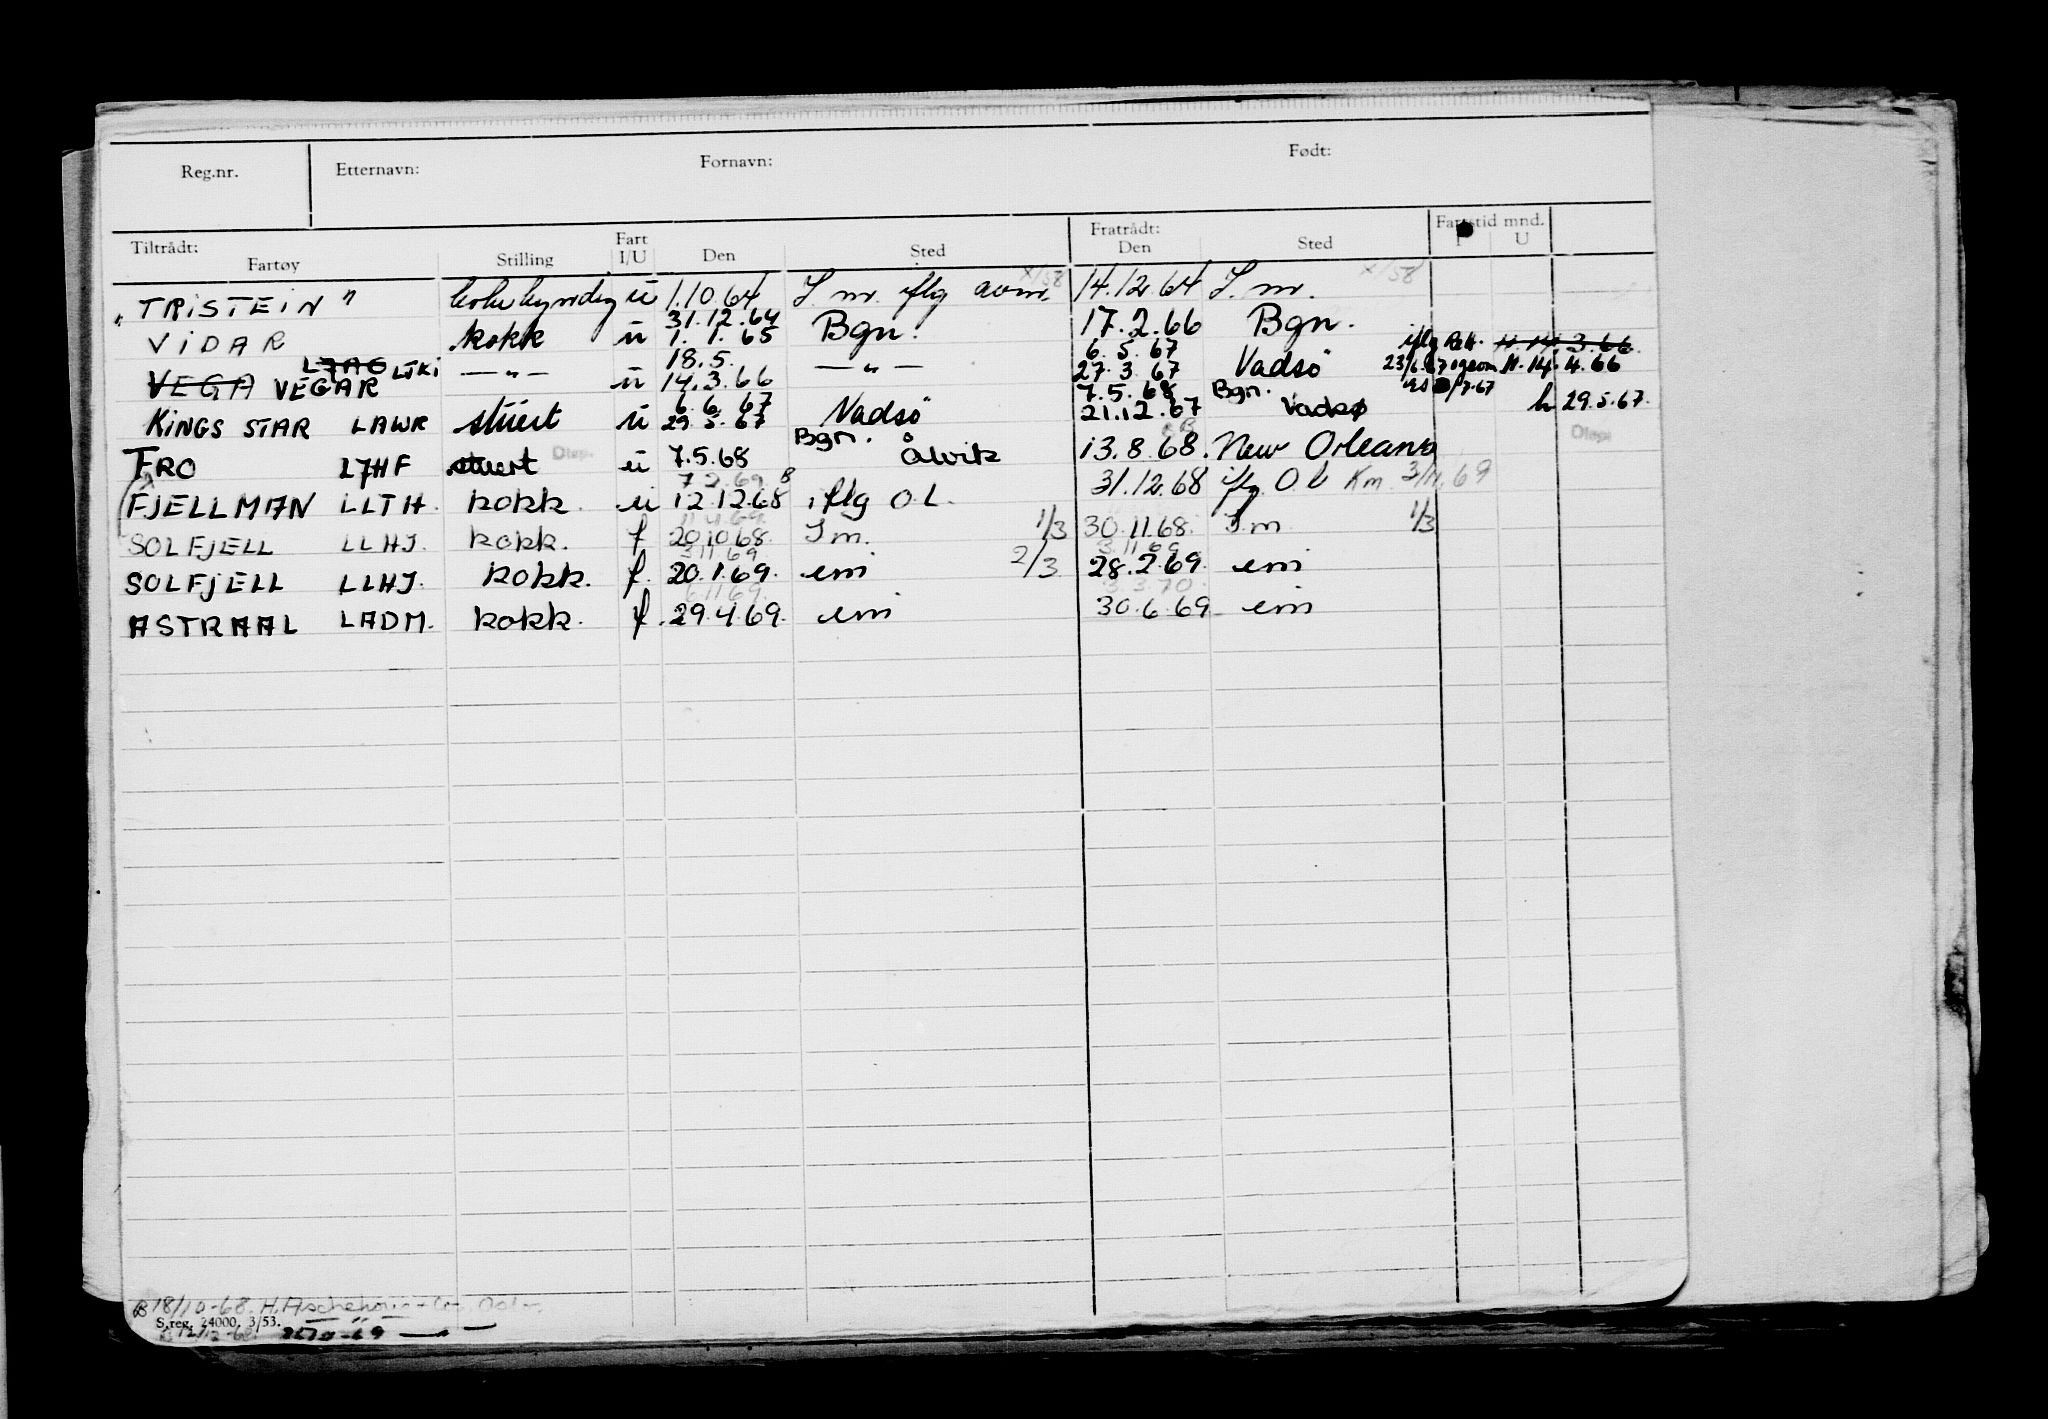 Reg.nr. Etternavn: Fornavn: Født:
Tiltrådt: Fartøy Stilling Fart I/U Den Sted Fratrådt: Den Sted Fartstid mnd. I U
"TRISTEIN" ü 1.10.64 I. m. iflg 14.12.64 I. m.
31.12.64
VIDAR kokk ü 1.1.65 Bgn. 17.2.66 Bgn.
18.5. 6.5.67 3.66
VEGA VEGAR LTKI —"— ü 14.3.66 —"— 27.3.67 Vadsö 4.66
6.6.67 7.5.68 Bgn.
KINGS STAR LAWR stüert ü 29.5.67 Vadsö 21.12.67 Vadsø 29.5.67.
Bgn.
FRO LJHF stuert ü 7.5.68 Ålvik 13.8.68. New Orleans
7.2.69
FJELLMAN LLTH. kokk. ü 12.12.68 iflg O.L. 31.12.68 iflg. O.L Km 3/11.69
SOLFJELL LLHJ. kokk. f 20.10.68. I m. 1/3 30.11.68. I m 1/3
3.11.69 3.11.69
SOLFJELL LLHJ. kokk. f. 20.1.69. em 2/3 28.2.69. em
6.11.69. 3.3.70.
ASTRAAL LADM. kokk. f. 29.4.69. em 30.6.69 em
18/10-68. H.
S.reg. 24000. 3/53.